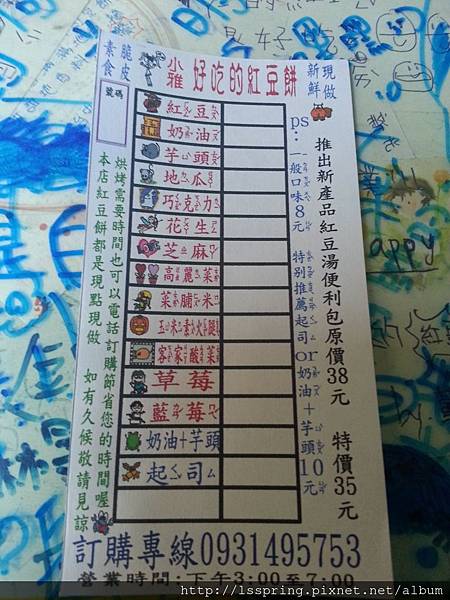 素食
脆皮
小雅
好吃的紅豆餅
新鮮
現做
號碼
紅豆
奶油
芋頭
地瓜
巧克力
花生
芝麻
高麗菜
菜脯米
玉米素火腿
客家酸菜
草莓
藍莓
奶油+芋頭
起司
ps:一般口味8元 特別推薦起司or奶油+芋頭10元
推出新產品紅豆湯便利包原價38元 特價35元
烘烤需要時間也可以電話訂購節省您的時間喔
本店紅豆餅都是現點現做 如有久候敬請見諒
訂購專線0931495753
營業時間:下午3:00至7:00
appy
http://lsspring.pixnet.net/album